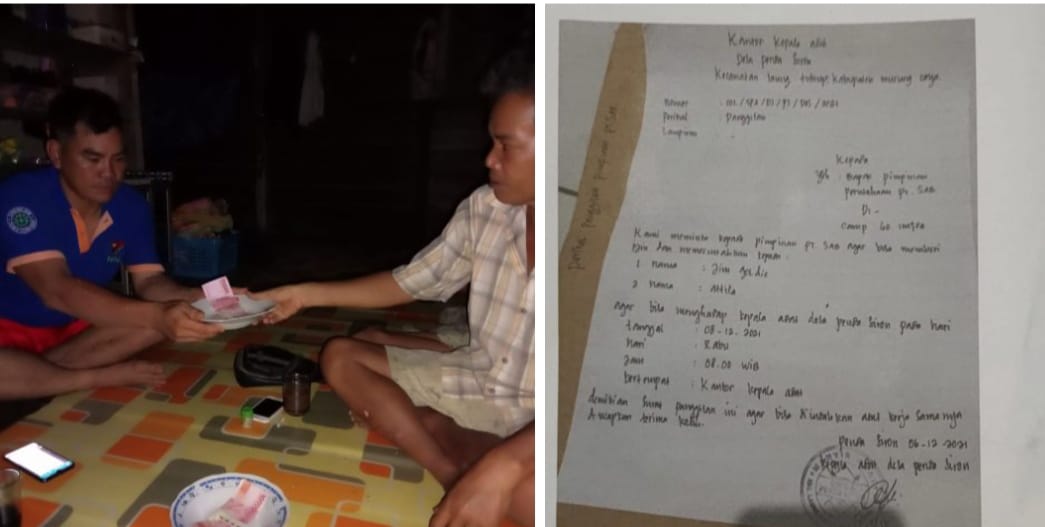 Kantor Kepala adat
Desa penda Siron
Kecamatan laung tuhup. Kabupaten murung raya
Nomor :
Perihal : Panggilan
Lampiran -
Kepada
Yth : Bapak pimpinan
perusahaan pt. SAB
Di -
Camp 60
Kami meminta kepada pimpinan pt. SAB agar bisa memberi
izin dan memerintahkan kepada :
1 Nama : Jim
2 Nama : Attila
agar bisa menghadap kepala adat desa penda Siron pada hari
tanggal : 08-12-2021
Hari : Rabu
Jam : 08.00 WIB
bertempat : Kantor kepala adat
demikian Surat panggilan ini agar bisa diindahkan atas kerja Samanya
di ucapkan terima kasih.
penda Siron 06-12-2021
Kepala adat desa penda Siron